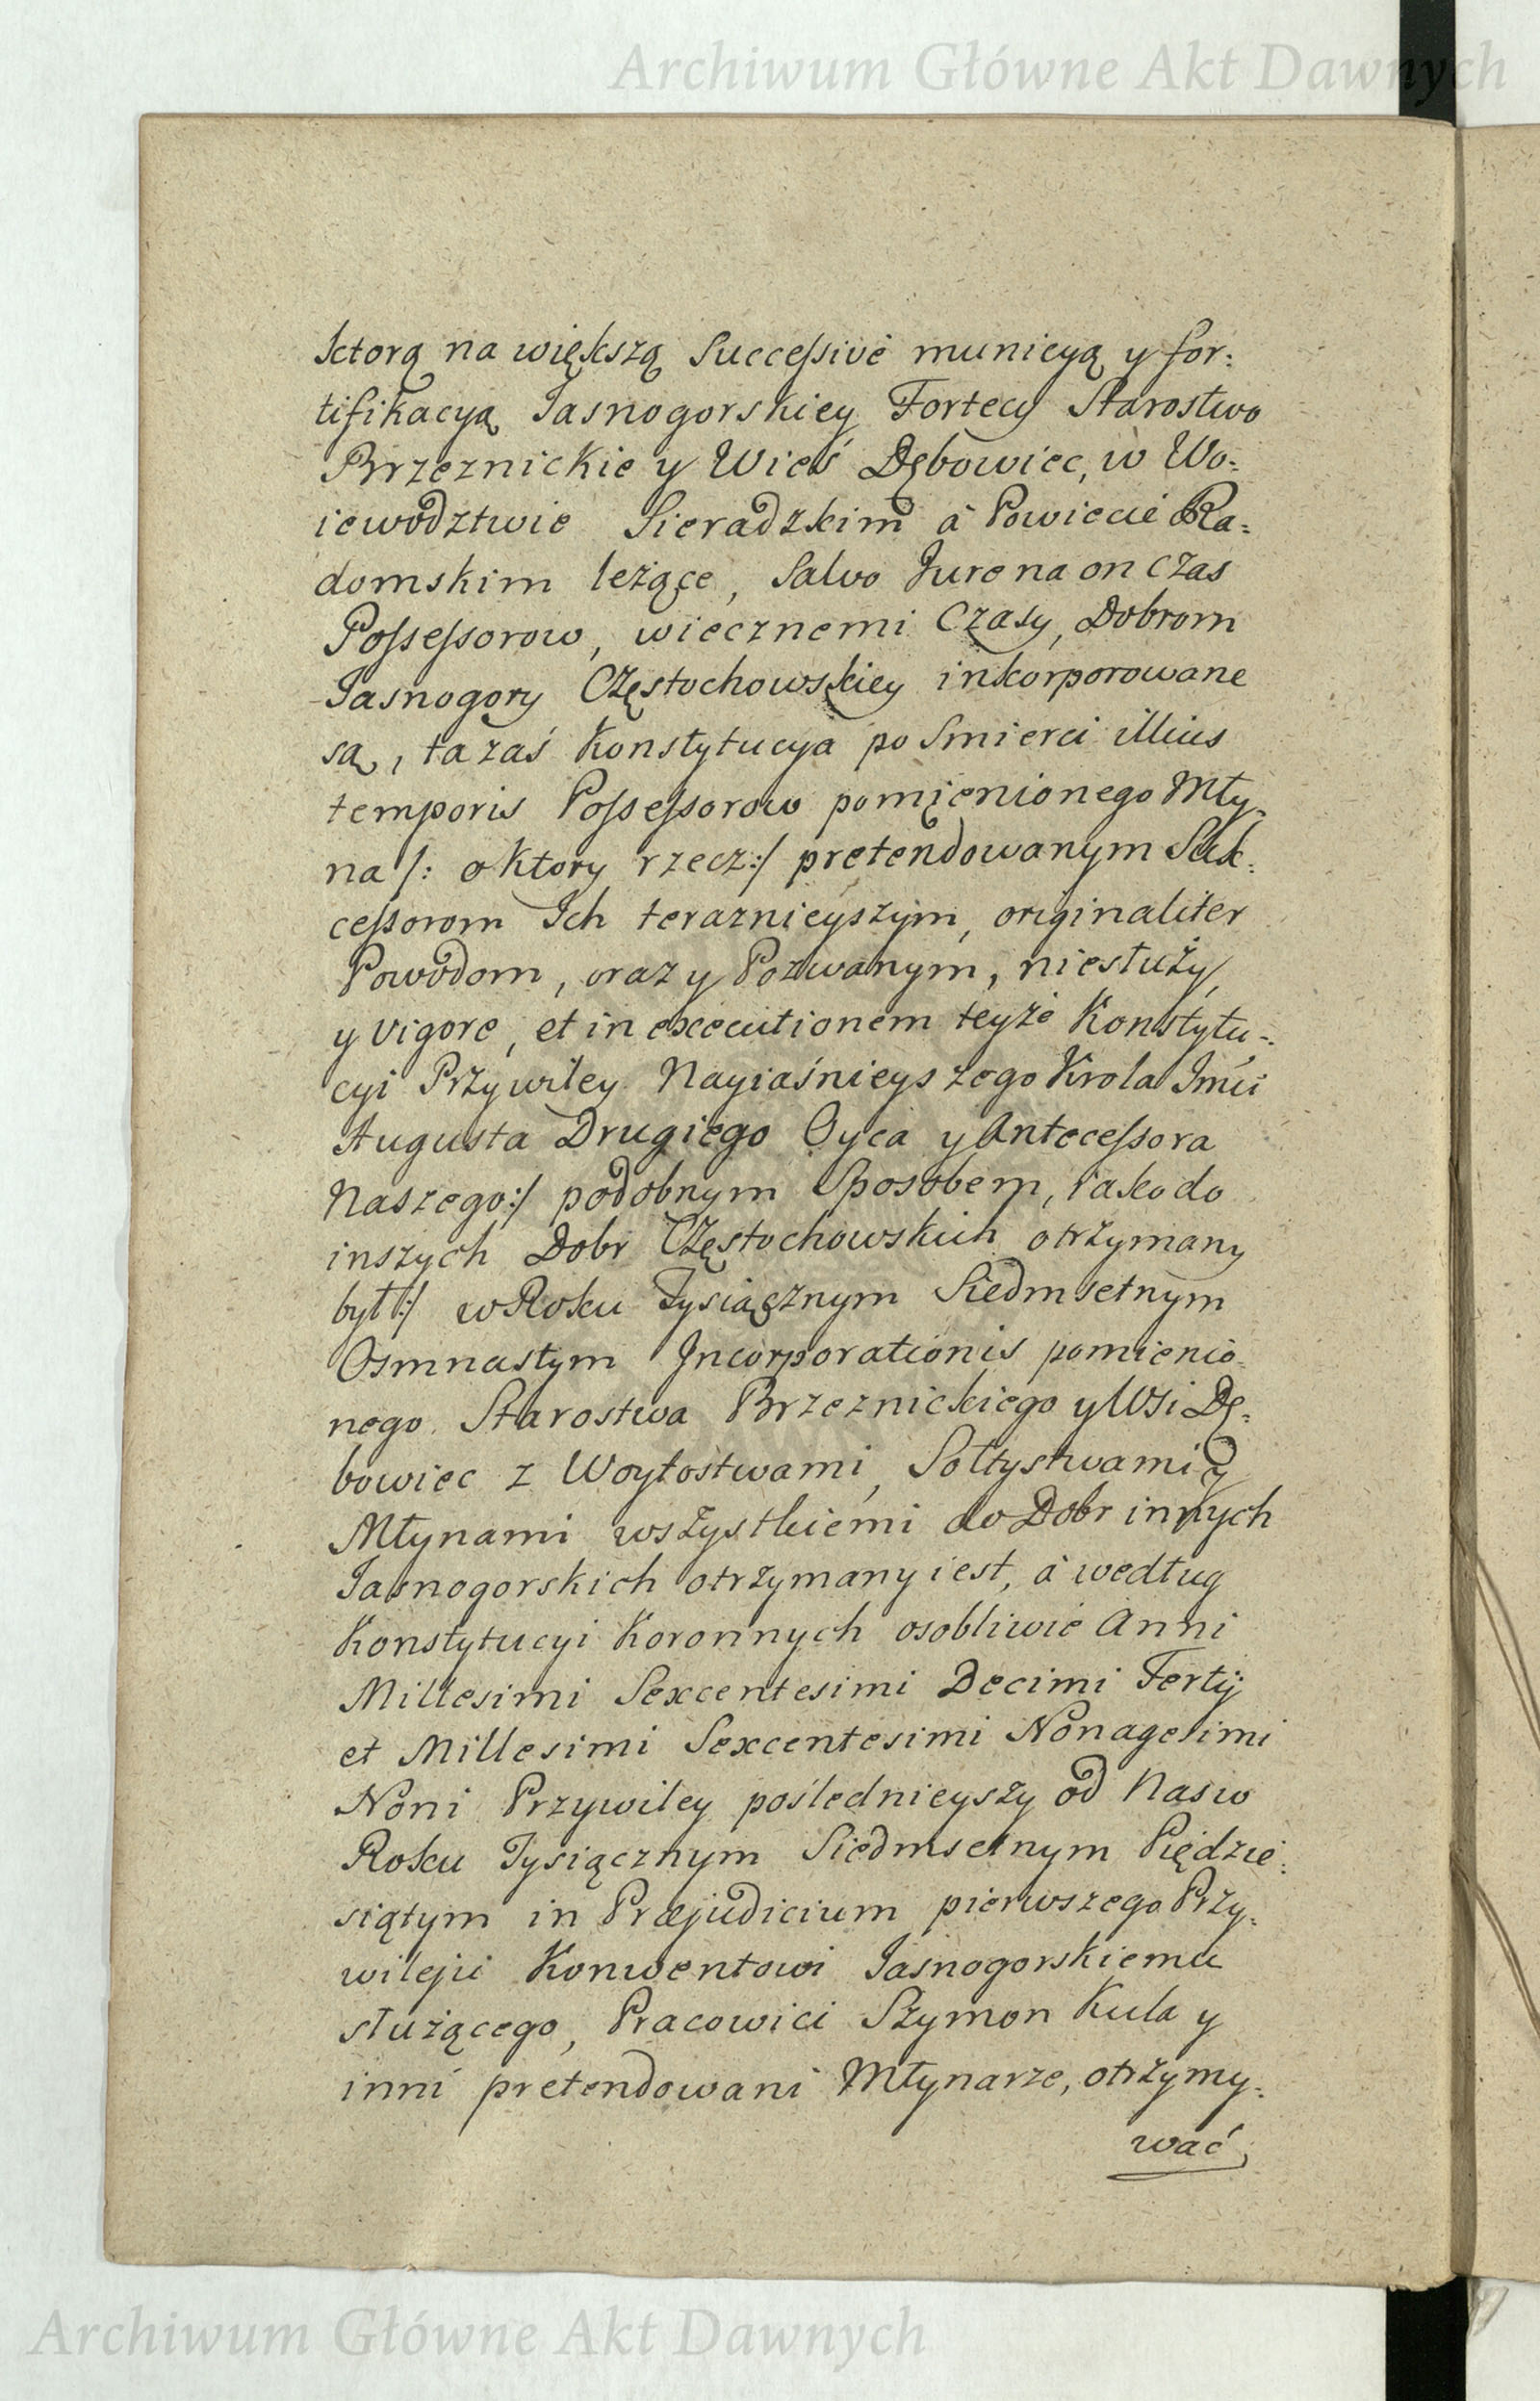 Archiwum Główne Akt Dawnych
ktorą na większą Successivè municyą y for:
tifikacyą Jasnogorskiey Fortecy Starostwo
Brzeznickie y Wieś Dębowiec, w Wo:
iewodztwie Sieradzkim à Powiecie Ra:
domskim leżące, Salvo Jure na on czas
Possessorow, wiecznemi Czasy, Dobrom
Jasnogory Częstochowskiey inkorporowane
są, ta zaś Konstytucya po Smierci illius
temporis Possessorow pomięnionego Mły:
na /: o ktory rzecz :/ pretendowanym Suk:
cessorom Ich teraznieyszym, originaliter
Powodom, oraz y Pozwanym, niesłuży,
y vigore, et in executionem teyże Konstytu:
cyi Przywiley Nayiaśnieyszego Krola Jmci
Augusta Drugiego Oyca y Antecessora
Naszego :/ podobnym Sposobem, iako do
inszych Dobr Częstochowskich otrzymany
był :/ w Roku Tysiącznym Siedmsetnym
Osmnastym Incorporationis pomienio:
nego Starostwa Brzeznickiego y Wsi Dę:
bowiec z Woytostwami, Sołtystwami y
Młynami wszystkiemi do Dobr innych
Jasnogorskich otrzymany iest, à według
Konstytucyi Koronnych osobliwie Anni
Millesimi Sexcentesimi Decimi Tertij
et Millesimi Sexcentesimi Nonagesimi
Noni Przywiley poślednieyszy od Nas w
Roku Tysiącznym Siedmsetnym Piędzie:
siątym in Præjudicium pierwszego Przy:
wileju Konwentowi Jasnogorskiemu
służącego, Pracowici Szymon Kula y
inni pretendowani Młynarze, otrzymy:
wać
Archiwum Główne Akt Dawnych